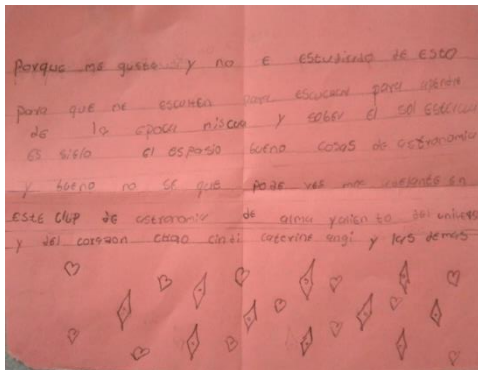 porque me gusta y no e estudiado de esto
para que me escuchen para escuchar para aprender
de la epoca y saber el sol
es siglo el espasio bueno cosas de astronomia
y bueno no se que en
este clup de astronomia de alma del universo
y del corazon chao cinti caterine angi y las demas